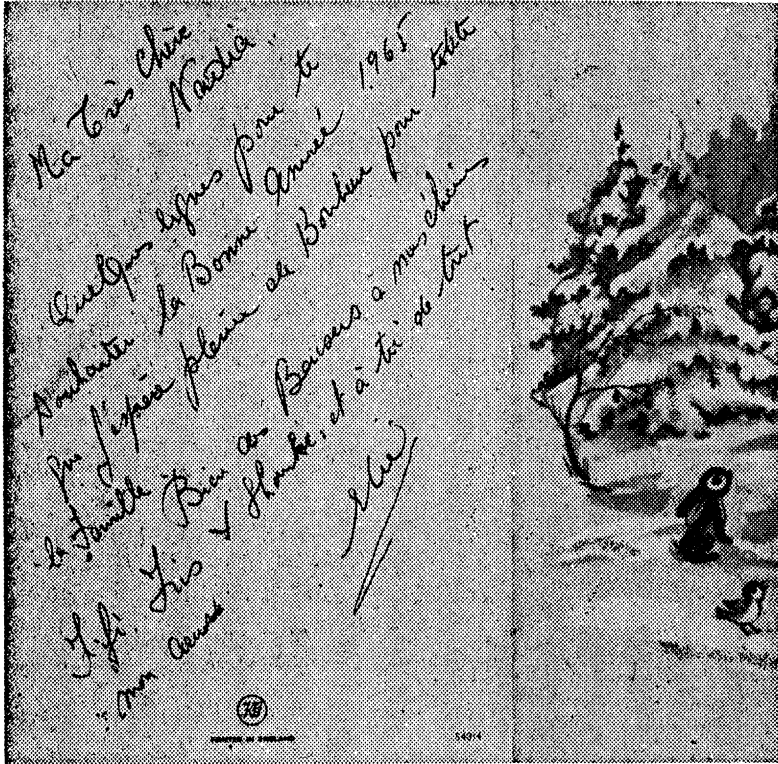 Ma Très Chère
Nadia
Quelques lignes pour te
souhaiter la Bonne Année 1965
que j'espère pleine de Bonheur pour toute
la Famille Bien des Baisers à mes chéris
Fifi, Iris & et à toi de tout
mon
PRINTED IN ENGLAND